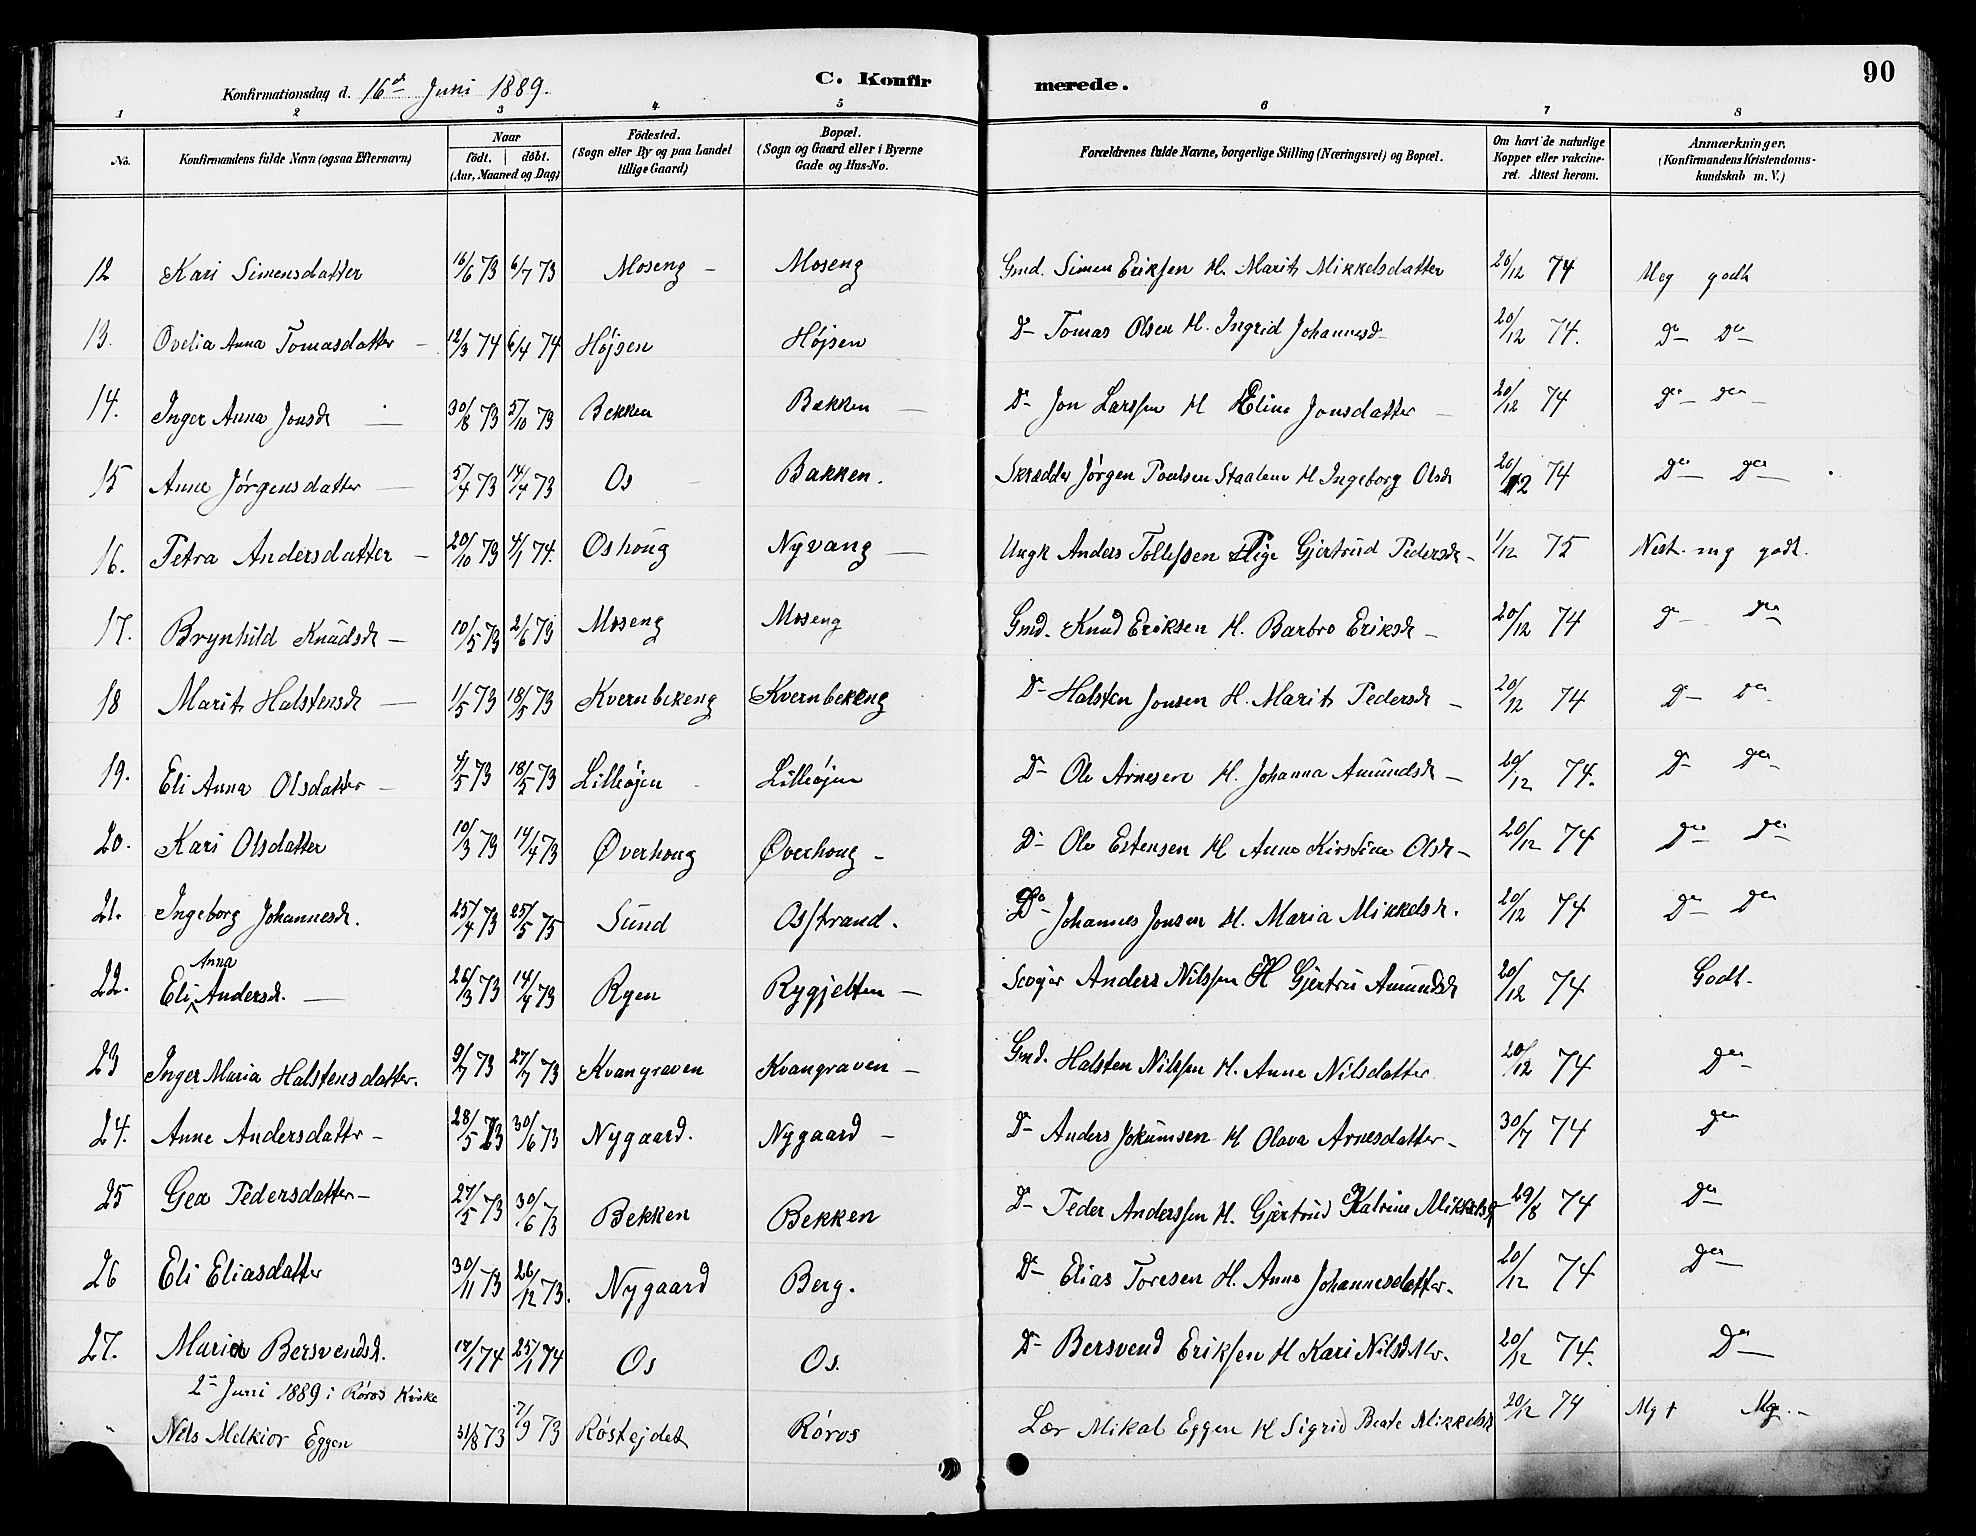 Konfirmationsdag d. 16de Juni 1889. C. Konfirmerede. 90
1 2 3 4 5 6 7 8
No. Konfirmandens fulde Navn (ogsaa Efternavn) Naar födt. döbt. (Aar, Maaned og Dag) Födested. (Sogn eller By og paa Landet tillige Gaard) Bopæl. (Sogn og Gaard eller i Byerne Gade og Hus-No. Forældrenes fulde Navne, borgerlige Stilling (Næringsvei) og Bopæl. Om havt de naturlige Kopper eller vakcineret. Attest herom. Anmærkninger, (Konfirmandens Kristendomskundskab m.V.)
12 Kari Simensdatter 16/6 73 6/7 73 Moseng - Moseng Gmd. Simen Eriksen H. Marit Mikkelsdatter 20/12 74 Meg godt
13. Ovelia Anna Tomasdatter - 12/3 74 6/4 74 Højsen Højsen Do Tomas Olsen H. Ingrid Johannesd 20/12 74. Do Do
14. Inger Anna Jonsdr - 30/8 73 5/10 73 Bekken Bakken - Do Jon Larssen H Eline Jonsdatter - 20/12 74 Do Do
15 Anne Jörgensdatter - 5/4 73 14/4 73 Os - Bakken. Skrædder Jörgen Poulsen Staalene H Ingeborg Olsdr 20/12 74 Do Do
16. Petra Andersdatter - 20/10 73 4/1 74. Oshoug Nyvang - Ungk Anders Tollefsen Pige Gjertrud Pedersdr - 1/12 75 Nest. mg godt.
17. Brynhild Knudsdr - 10/5 73 2/6 73 Moseng Moseng Gmd. Knud Eriksen H. Barbro Eriksdr - 20/12 74 Do Do
18 Marit Halstensdr - 1/5 73 18/5 73 Kvernbekeng Kvernbekeng Do Halsten Jonsen H. Marit Pedersdr - 20/12 74 Do Do
19. Eli Anna Olsdatter - 4/5 73 18/5 73 Lilleøjen - Lilleøjen Do Ole Arnesen H. Johanna Amundsdr - 20/12 74. Do Do
20. Kari Olsdatter 10/3 73 14/4 73 Øverhoug Øverhoug - Do Ole Estensen H Anne Kirstine Olsdr - 20/12 74 Do Do
21. Ingeborg Johannesdr. 25/4 73 25/5 75 Sund Osstrand. Do Johannes Jonsen H. Maria Mikkelsdr. 20/12 74 Do Do
22. Eli Anna Andersdr. - 26/3 73 14/4 73 Rygen Rygjelten - Anders Nilssen H Gjertru Amundsdr 20/12 74 Godt.
23 Inger Maria Halstensdatter. 9/7 73 27/7 73 Kvangraven Kvangraven - Gmd. Halsten Nilssen H. Anne Nilsdatter 20/12 74 Do
24. Anne Andersdattr - 28/5 73 30/6 73 Nygaard. Nygaard - Do Anders Jokumsen H Olava Arnesdatter - 30/7 74 Do
25 Gea Pedersdatter - 27/5 73 30/6 73 Bekken Bekken Do Peder Anderssen H. Gjertrud Katrine Mikkelsdr 29/8 74 Do
26 Eli Eliasdatter 30/11 73 26/12 73. Nygaard Berg. Do Elias Toresen H. Anne Johannesdatter. 20/12 74 Do
27. Maria Bersvendsd. 17/1 74 25/1 74 Os Os. Do Bersvend Eriksen H Kari Nilsdattr. 20/12 74. Do
2den Juni 1889 i Røros Kirke
" Nils Melkior Eggen 31/8 73 7/9 73 Røstejdet Røros Lær Mikal Eggen H Sigrid Beate Mikkelsdr 20/12 74 Mg + Mg. -